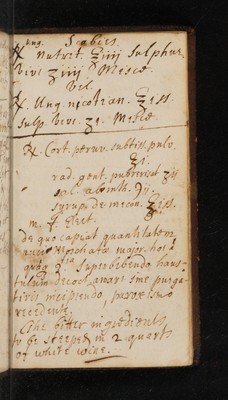 Scabies.
℞ Ung. Nutrit. ℥iiij Sulphur.
Vivi ʒiiij Misce.
Vel.
℞. Ung. nicotian. ℥i ss.
Sulp. Vivi. ʒi. Misce.
℞. Cort. peruv. subtiss. pulv.
℥i.
rad. gent. pulverisat ʒij
sal. absinth. ℈ij.
syrup. de mecon. ℥iss.
m. f. Elect.
de quo capiat quantitatem
nucis moschatæ major. hor.
quaq superbibendo haus-
tulum decoct. amari sine purga-
tivis incipiendo,
recedente.
The bitter ingredients
to be steeped in 2 quarts
of white wine.